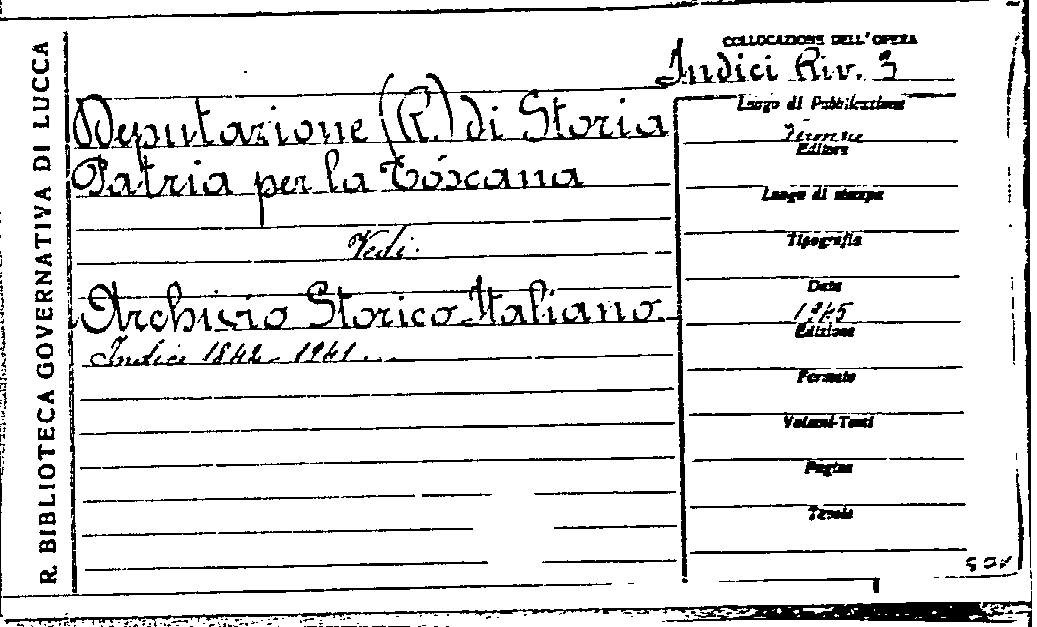 R. BIBLIOTECA GOVERNATIVA DI LUCCA
COLLOCAZIONE DELL'OPERA
Indici Riv. 3
Deputazione (R.) di Storia
Patria per la Toscana
Vedi:
Archivio Storico Italiano.
Indici 1842-1941.
Luogo di Pubblicazione
Firenze
Editore
Luogo di stampa
Tipografia
Data
1945
Edizione
Formato
Volumi-Tomi
Pagine
Tavole